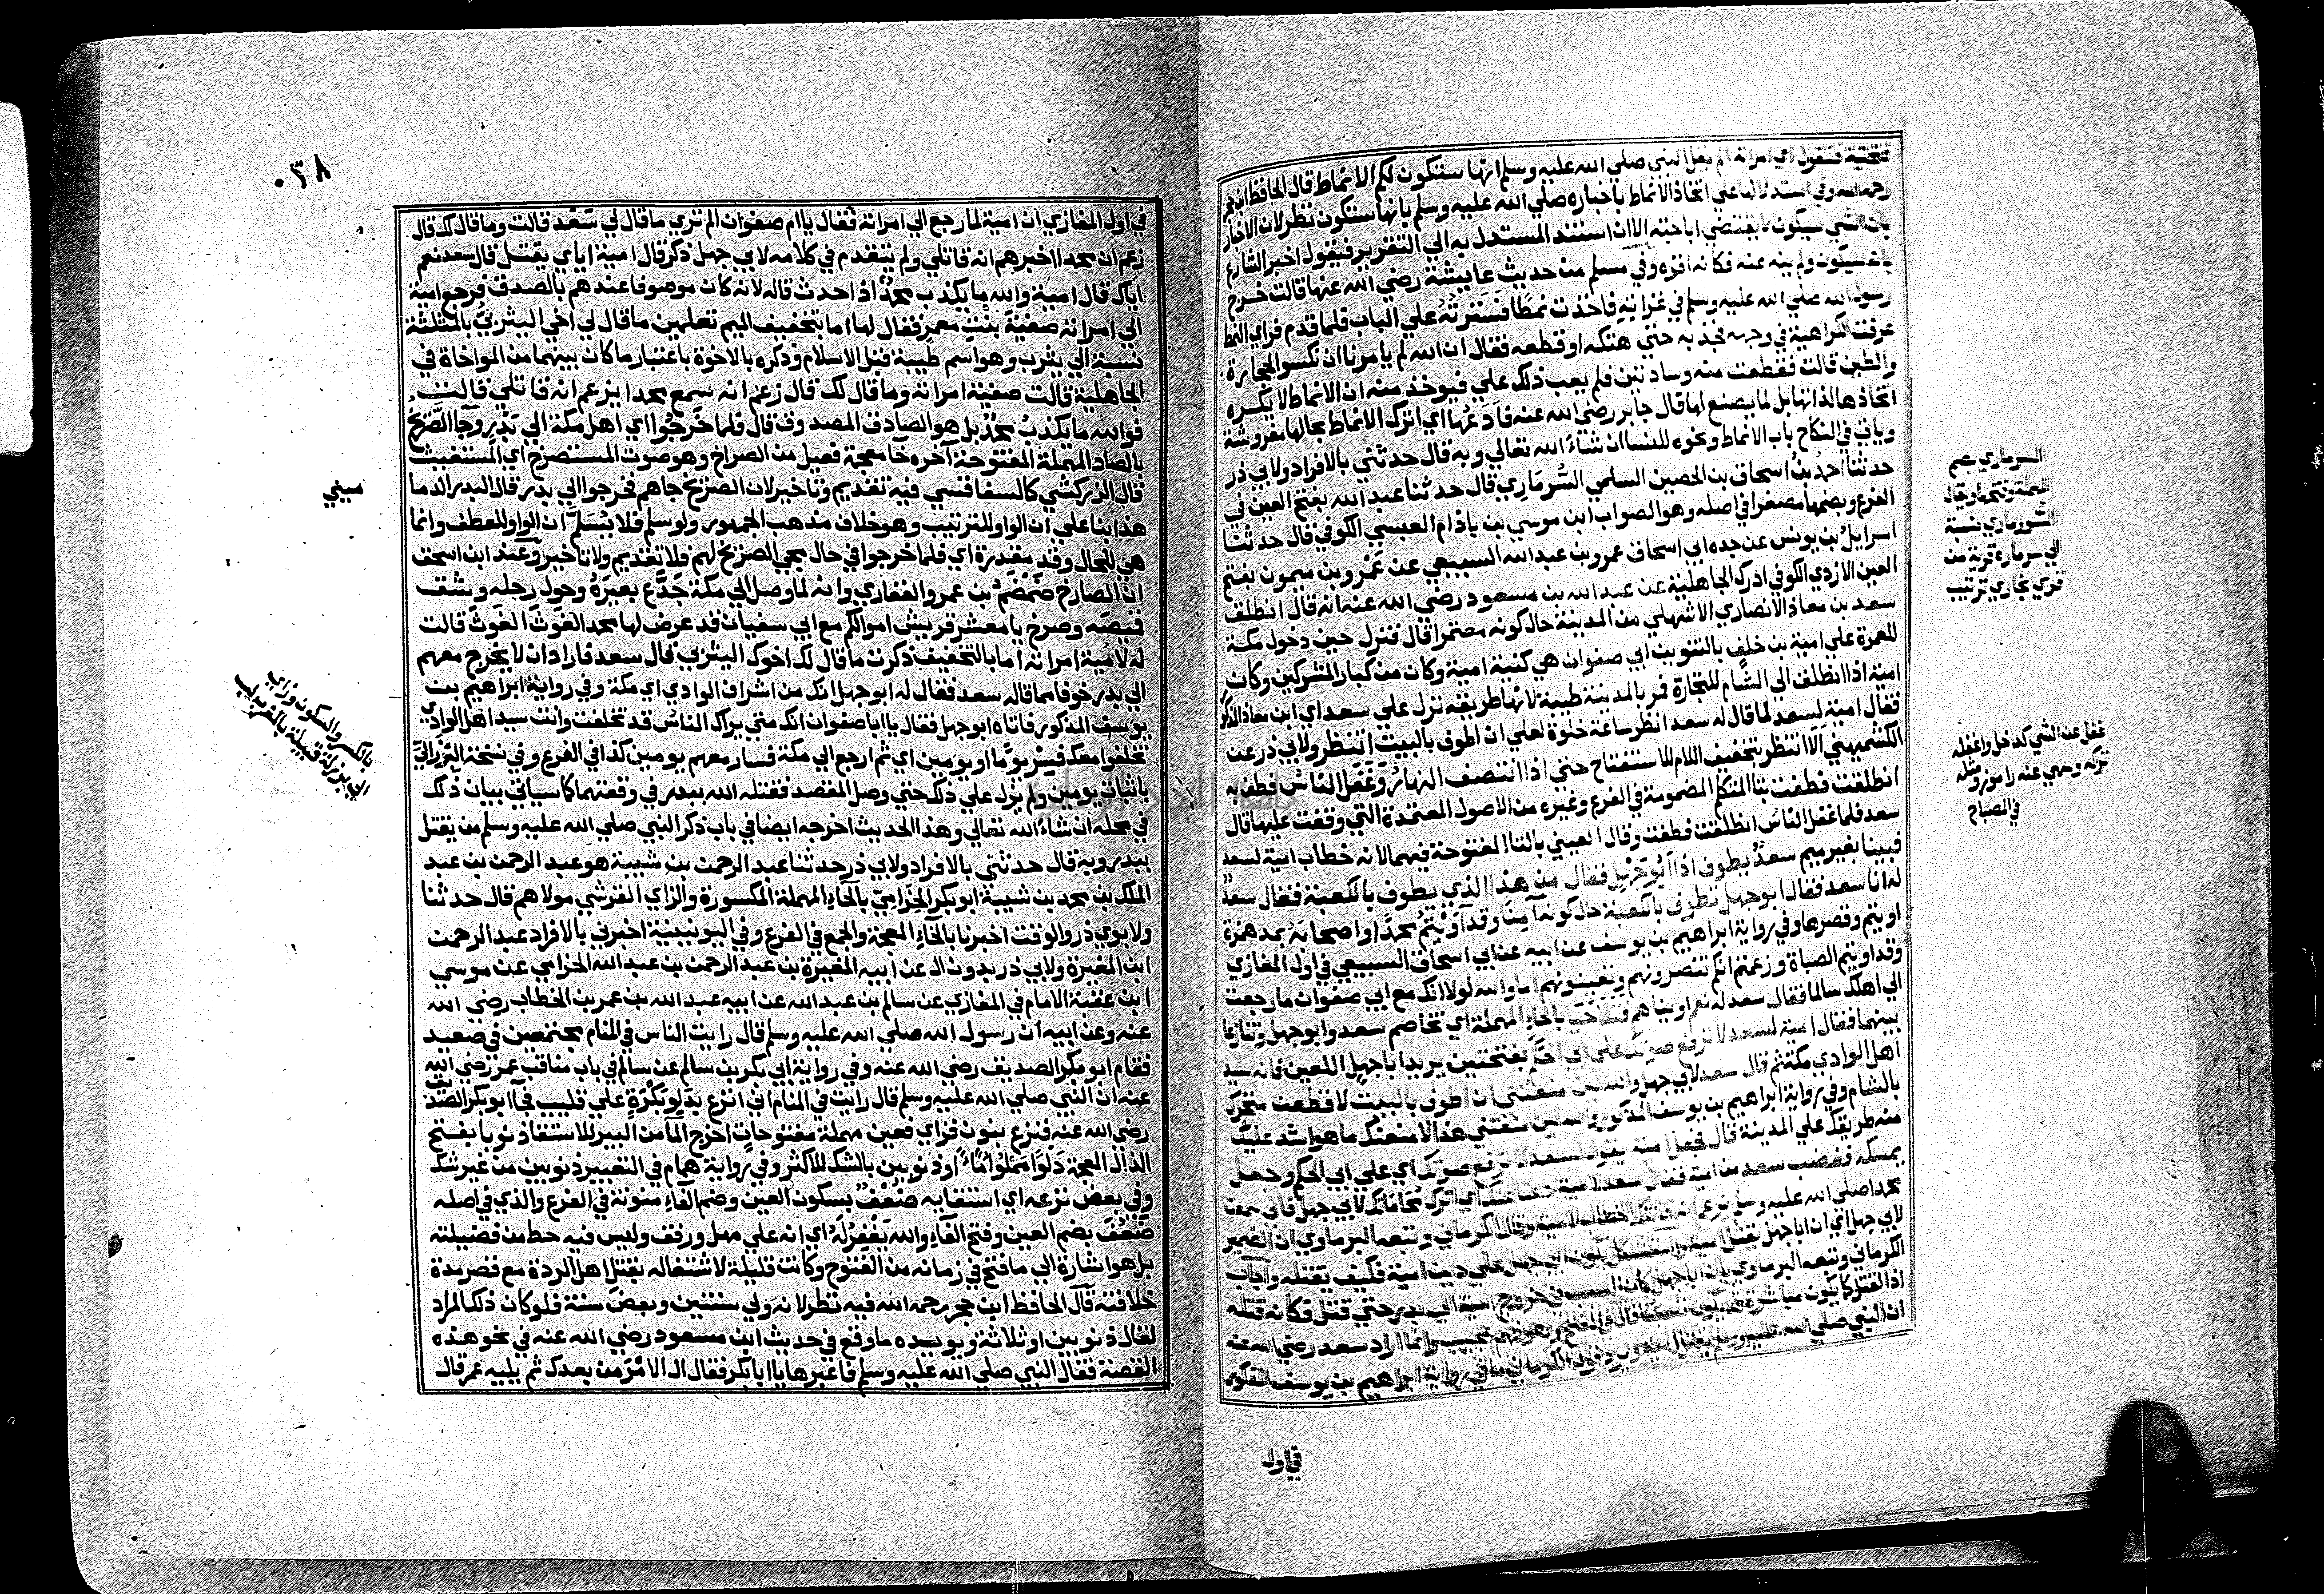 فتحتية فتقول اي امراته الم يقل النبي صلي الله عليه وسلم انها ستكون لكم الانماط قال الحافظ ابن حجر
رحمه الله وفي استدلالها علي اتخاذ الانماط باخباره صلي الله عليه وسلم بانها ستكون نظر لان الاخبار
بان الشي سيكون لا يقتضي اباحته الا ان استند المستدل به الي التقرير فيقول اخبر الشارع
بانه سيكون ولم ينه عنه فكانه اقره وفي مسلم من حديث عايشة رضي الله عنها قالت خرج
رسول الله صلي الله عليه وسلم في غزاته فاخذت نمطا فسترته علي الباب فلما قدم فراي النمط
عرفت الكراهية في وجهه فجذبه حتي هتكه او قطعه فقال ان الله لم يامرنا ان نكسو الحجارة
والطين قالت فقطعت منه وسادتين فلم يعب ذلك علي فيوخذ منه ان الانماط لا يكره
اتخاذها لذاتها بل لما يصنع بها قال جابر رضي الله عنه فادعها اي اترك الانماط بحالها مفروشة
وياتي في النكاح باب الانماط ونحوه للنسا ان شاء الله تعالي وبه قال حدثني بالافراد ولابي ذر
حدثنا احمد بن اسحاق بن الحصين السلمي السرماري قال حدثنا عبد الله بفتح العين في
الفرع وبضمها مصغرا في اصله وهو الصواب ابن موسي بن باذام العبسي الكوفي قال حدثنا
اسرايل بن يونس عن جده ابي اسحاق عمرو بن عبد الله السبيعي عن عمرو بن ميمون بفتح
العين الازدي الكوفي ادرك الجاهلية عن عبد الله بن مسعود رضي الله عنه انه قال انطلق
سعد بن معاذ الانصاري الاشهلي من المدينة حال كونه معتمرا قال فنزل حين دخول مكة
للعمرة علي امية بن خلف بالتنوين ابي صفوان هي كنية امية وكان من كبار المشركين وكان
امية اذا انطلق الي الشام للتجارة فمر بالمدينة طيبة لانها طريقه نزل علي سعد اي ابن معاذ المذكور
فقال امية لسعد لما قال له سعد انظر ساعة خلوة لعلي ان اطوف بالبيت انتظر ولابي ذر عن
الكشميهني الا انتظر بتخفيف اللام للاستفتاح حتي اذا انتصف النهار وغفل الناس فطف به
انطلقت فطفت بتا المتكلم المضمومة في الفرع وغيره من الاصول المعتمدة التي وقفت عليها قال
سعد فلما غفل الناس انطلقت فطفت وقال العيني بالتا المفتوحة فيهما لانه خطاب امية لسعد
فبينا بغير ميم سعد يطوف اذا ابو جهل فقال من هذا الذي يطوف بالكعبة فقال سعد
له انا سعد فقال ابو جهل تطوف بالكعبة حال كونه آمنا وقد آويتم محمدا واصحابه بمد همزة
اويتم وقصرها وفي رواية ابراهيم بن يوسف عن ابيه عن ابي اسحاق السبيعي في اول المغازي
وقد اويتم الصباة وزعمتم انكم تنصرونهم وتعينونهم اما والله لولا انك مع ابي صفوان ما رجعت
الي اهلك سالما فقال سعد له نعم اويناهم فتلاحيا بالحاء المهملة اي تخاصم سعد وابو جهل وتنازعا
بينهما فقال امية لسعد لا ترفع صوتك علي ابي الحكم بفتحتين يريد ابا جهل اللعين فانه سيد
اهل الوادي مكة ثم قال سعد لابي جهل والله لين منعتني ان اطوف بالبيت لاقطعن متجرك
بالشام وفي رواية ابراهيم بن يوسف المذكور والله لين منعتني هذا لامنعنك ما هو اشد عليك
منه طريقك علي المدينة قال فجعل امية يقول لسعد لا ترفع صوتك اي علي ابي الحكم وجعل
يمسكه فغضب سعد من امية فقال سعد لامية دعنا عنك اي اترك محاماتك لابي جهل فاني سمعت
محمدا صلي الله عليه وسلم يزعم انه قاتلك خطاب لامية وقال الكرماني وتبعه البرماوي ان الضمير
لابي جهل اي ان ابا جهل يقتل امية واستشكل بكون ابي جهل علي دين امية فكيف يقتله واجاب
الكرماني وتبعه البرماوي بان ابا جهل كان السبب في خروج امية الي بدر حتي قتل فكانه قتله
اذ القتل كما يكون مباشرة قد يكون تسببا قال في الفتح وهو فهم عجيب وانما اراد سعد رضي الله عنه
ان النبي صلي الله عليه وسلم يقتل امية ويرد قول الكرماني ما في رواية ابراهيم بن يوسف المذكور
في اول
السرماري بضم
المهملة وفتحها ويقال
السورماري نسبة
الي سرمارة قرية من
قري بخاري ترتيب
غفل عن الشي كدخل واغفله
تركه وسهي عنه راموز ومثله
في المصباح
٠٣٨
في اول المغازي ان امية لما رجع الي امراته فقال يا ام صفوان الم تري ما قال لي سعد قالت وما قال لك قال
زعم ان محمدا اخبرهم انه قاتلي ولم يتقدم في كلامه لابي جهل ذكر قال امية اياي يقتل قال سعد نعم
اياك قال امية والله ما يكذب محمد اذا حدث قاله لانه كان موصوفا عندهم بالصدق فرجع امية
الي امراته صفية بنت معمر فقال لها اما بتخفيف الميم تعلمين ما قال لي اخي اليثربي بالمثلثة
نسبة الي يثرب وهو اسم طيبة قبل الاسلام وذكره بالاخوة باعتبار ما كان بينهما من المواخاة في
الجاهلية قالت صفية امراته وما قال لك قال زعم انه سمع محمدا يزعم انه قاتلي قالت
فوالله ما يكذب محمد بل هو الصادق المصدوق قال فلما خرجوا اي اهل مكة الي بدر وجآ الصريخ
بالصاد المهملة المفتوحة آخره خا معجمة فعيل من الصراخ وهو صوت المستصرخ اي المستغيث
قال الزركشي كالسفاقسي فيه تقديم وتاخير لان الصريخ جاهم فخرجوا الي بدر قال البدر الدما
ميني
هذا بنا علي ان الواو للترتيب وهو خلاف مذهب الجمهور ولو سلم فلا يسلم ان الواو للعطف وانما
هي للحال وقد مقدرة اي فلما خرجوا في حال مجي الصريخ لهم فلا تقديم ولا تاخير وعند ابن اسحق
ان الصارخ ضمضم بن عمرو الغفاري وانه لما وصل الي مكة جدع بعيره وحول رحله وشق
قميصه وصرخ يا معشر قريش اموالكم مع ابي سفيان قد عرض لها محمد الغوث الغوث قالت
له لامية امراته اما بالتخفيف ذكرت ما قال لك اخوك اليثربي قال سعد فاراد ان لا يخرج معهم
الي بدر خوفا مما قاله سعد فقال له ابو جهل انك من اشراف الوادي اي مكة وفي رواية ابراهيم بن
يوسف المذكور فاتاه ابو جهل فقال يا ابا صفوان انك متي يراك الناس قد تخلفت وانت سيد اهل الوادي
تخلفوا معك فسر يوما او يومين اي ثم ارجع الي مكة فسار معهم يومين كذا في الفرع وفي نسخة البرزالي
باثبات يومين ولم يزل علي ذلك حتي وصل المقصد فقتله الله ببدر في وقعتها كما سياتي بيان ذلك
في محله ان شاء الله تعالي وهذا الحديث اخرجه ايضا في باب ذكر النبي صلي الله عليه وسلم من يقتل
ببدر وبه قال حدثني بالافراد ولابي ذر حدثنا عبد الرحمن بن شيبة هو عبد الرحمن بن عبد
الملك بن محمد بن شيبة ابو بكر الحزامي بالحاء المهملة المكسورة والزاي القرشي مولاهم قال حدثنا
ولابوي ذر والوقت اخبرنا بالخاء المعجمة والجمع في الفرع وفي اليونينية اخبرني بالافراد عبد الرحمن
ابن المغيرة ولابي ذر بدون ال عن ابيه المغيرة بن عبد الرحمن بن عبد الله الحزامي عن موسي
ابن عقبة الامام في المغازي عن سالم بن عبد الله عن ابيه عبد الله بن عمر بن الخطاب رضي الله
عنه وعن ابيه ان رسول الله صلي الله عليه وسلم قال رايت الناس في المنام مجتمعين في صعيد
فقام ابو بكر الصديق رضي الله عنه وفي رواية ابي بكر بن سالم عن سالم في باب مناقب عمر رضي الله
عنه ان النبي صلي الله عليه وسلم قال رايت في المنام اني انزع بدلو بكرة علي قليب فجآ ابو بكر الصديق
رضي الله عنه فنزع بنون فزاي فعين مهملة مفتوحات اخرج الما من البير للاستقا ذنوبا بفتح
الذال المعجمة دلوا مملوا ماء او ذنوبين بالشك للاكثر وفي رواية همام في التعبير ذنوبين من غير شك
وفي بعض نزعه اي استقايه ضعف بسكون العين وضم الفاء منونة في الفرع والذي في اصله
ضعف بضم العين وفتح الفاء والله يغفر له اي انه علي مهل ورفق وليس فيه حط من فضيلته
بل هو اشارة الي ما فتح في زمانه من الفتوح وكانت قليلة لاشتغاله بقتل اهل الردة مع قصر مدة
خلافته قال الحافظ ابن حجر رحمه الله فيه نظر لانه ولي سنتين وبعض سنة فلو كان ذلك المراد
لقال ذنوبين او ثلاثة ويويده ما وقع في حديث ابن مسعود رضي الله عنه في نحو هذه
القصة فقال النبي صلي الله عليه وسلم فاعبرها يا ابا بكر فقال الي الامر من بعدك ثم يليه عمر قال
بالكسر والسكون وزاي